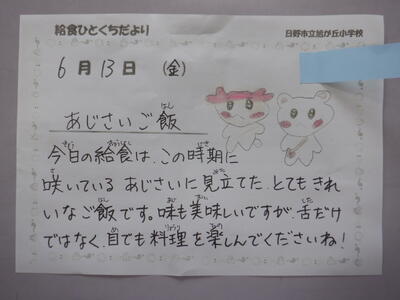 給食ひとくちだより
日野市立旭が丘小学校
6月13日（金）
あじさいご飯
今日の給食は、この時期に
咲いているあじさいに見立てた、とてもきれ
いなご飯です。味も美味しいですが、舌だけ
ではなく、目でも料理を楽しんでくださいね！